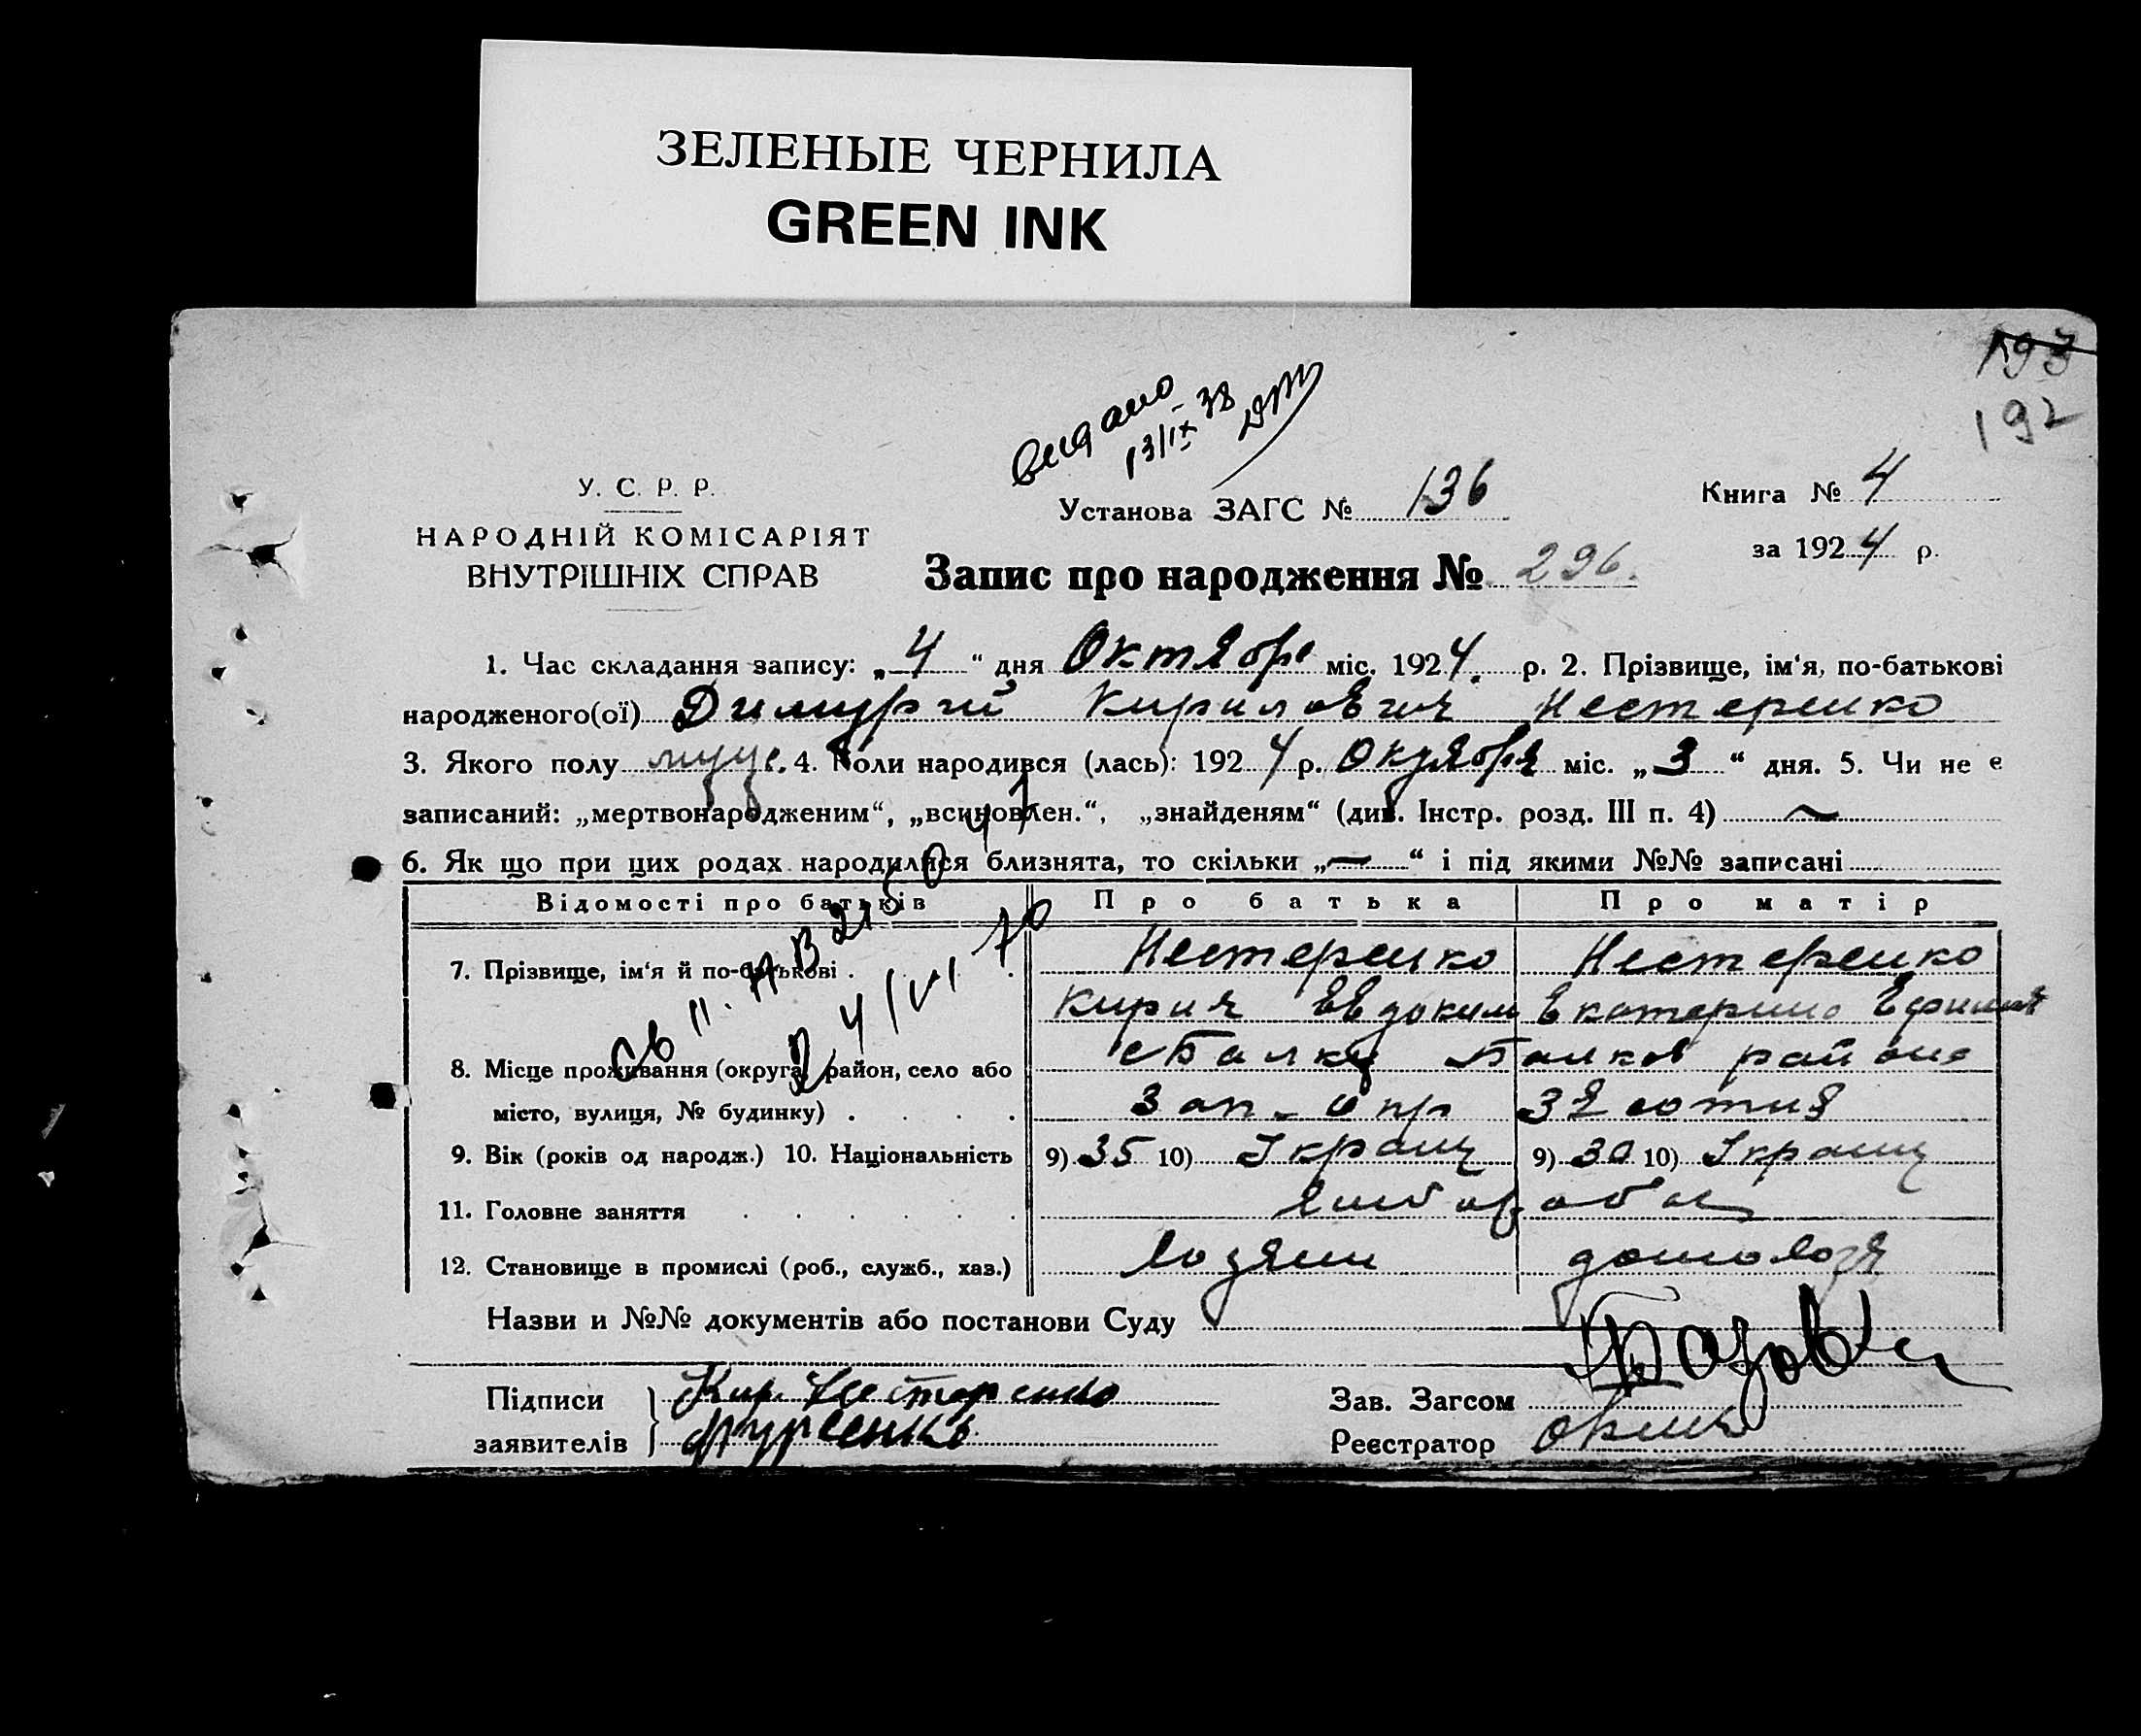 ЗЕЛЕНЫЕ ЧЕРНИЛА
GREEN INK
193
192
видано
13/IX - 38
У. С. Р. Р.
НАРОДНІЙ КОМІСАРІЯТ
ВНУТРІШНІХ СПРАВ
Установа ЗАГС № 136
Книга № 4
за 1924 р.
Запис про народження № 296.
1. Час складання запису: „4“ дня Октября міс. 1924. р. 2. Прізвище, ім‘я, по-батькові
народженого(ої) Димитрий Кирилович Нестеренко
3. Якого полу муже. 4. Коли народився (лась): 1924 р. Октября міс. „3“ дня. 5. Чи не є
записаний: „мертвонародженим“, „всиновлен.“, „знайденям“ (див. Інстр. розд. III п. 4) ~
6. Як що при цих родах народилися близнята, то скільки „—“ і під якими №№ записані
Відомості про батьків Про батька Про матір
7. Прізвище, ім‘я й по-батькові . . . . Нестеренко Нестеренко
Кирил Евдоким Екатерина Ефимия
8. Місце проживання (округа, район, село або сБалки Балков района
місто, вулиця, № будинку) . . . . Зап - окр 3я сотня
9. Вік (років од народж.) 10. Національність 9) 35 10) Украин 9) 30 10) Украин
11. Головне заняття . . . . . .
12. Становище в промислі (роб., служб., хаз.) хозяин домохозя
Назви и №№ документів або постанови Суду
Підписи заявителів Кир. Нестеренко
Зав. Загсом
Реєстратор
св II. ЯВ 21504
24/VI 70